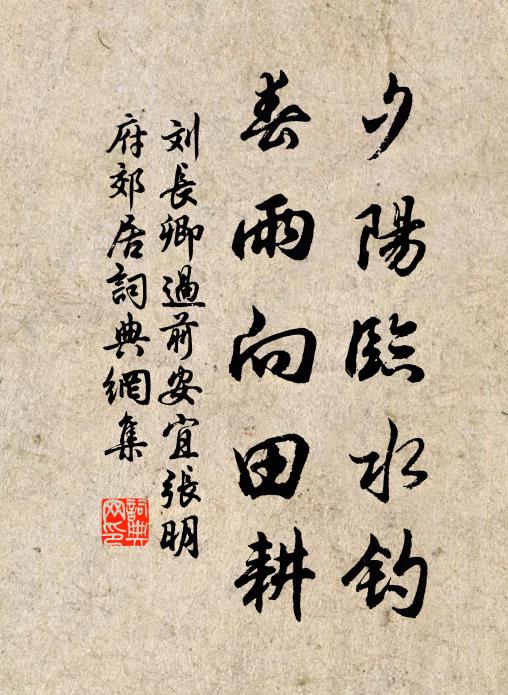 夕陽臨水釣
春雨向田耕
刘長卿過前安宜張明
府郊居詞典網集
詞典
网印